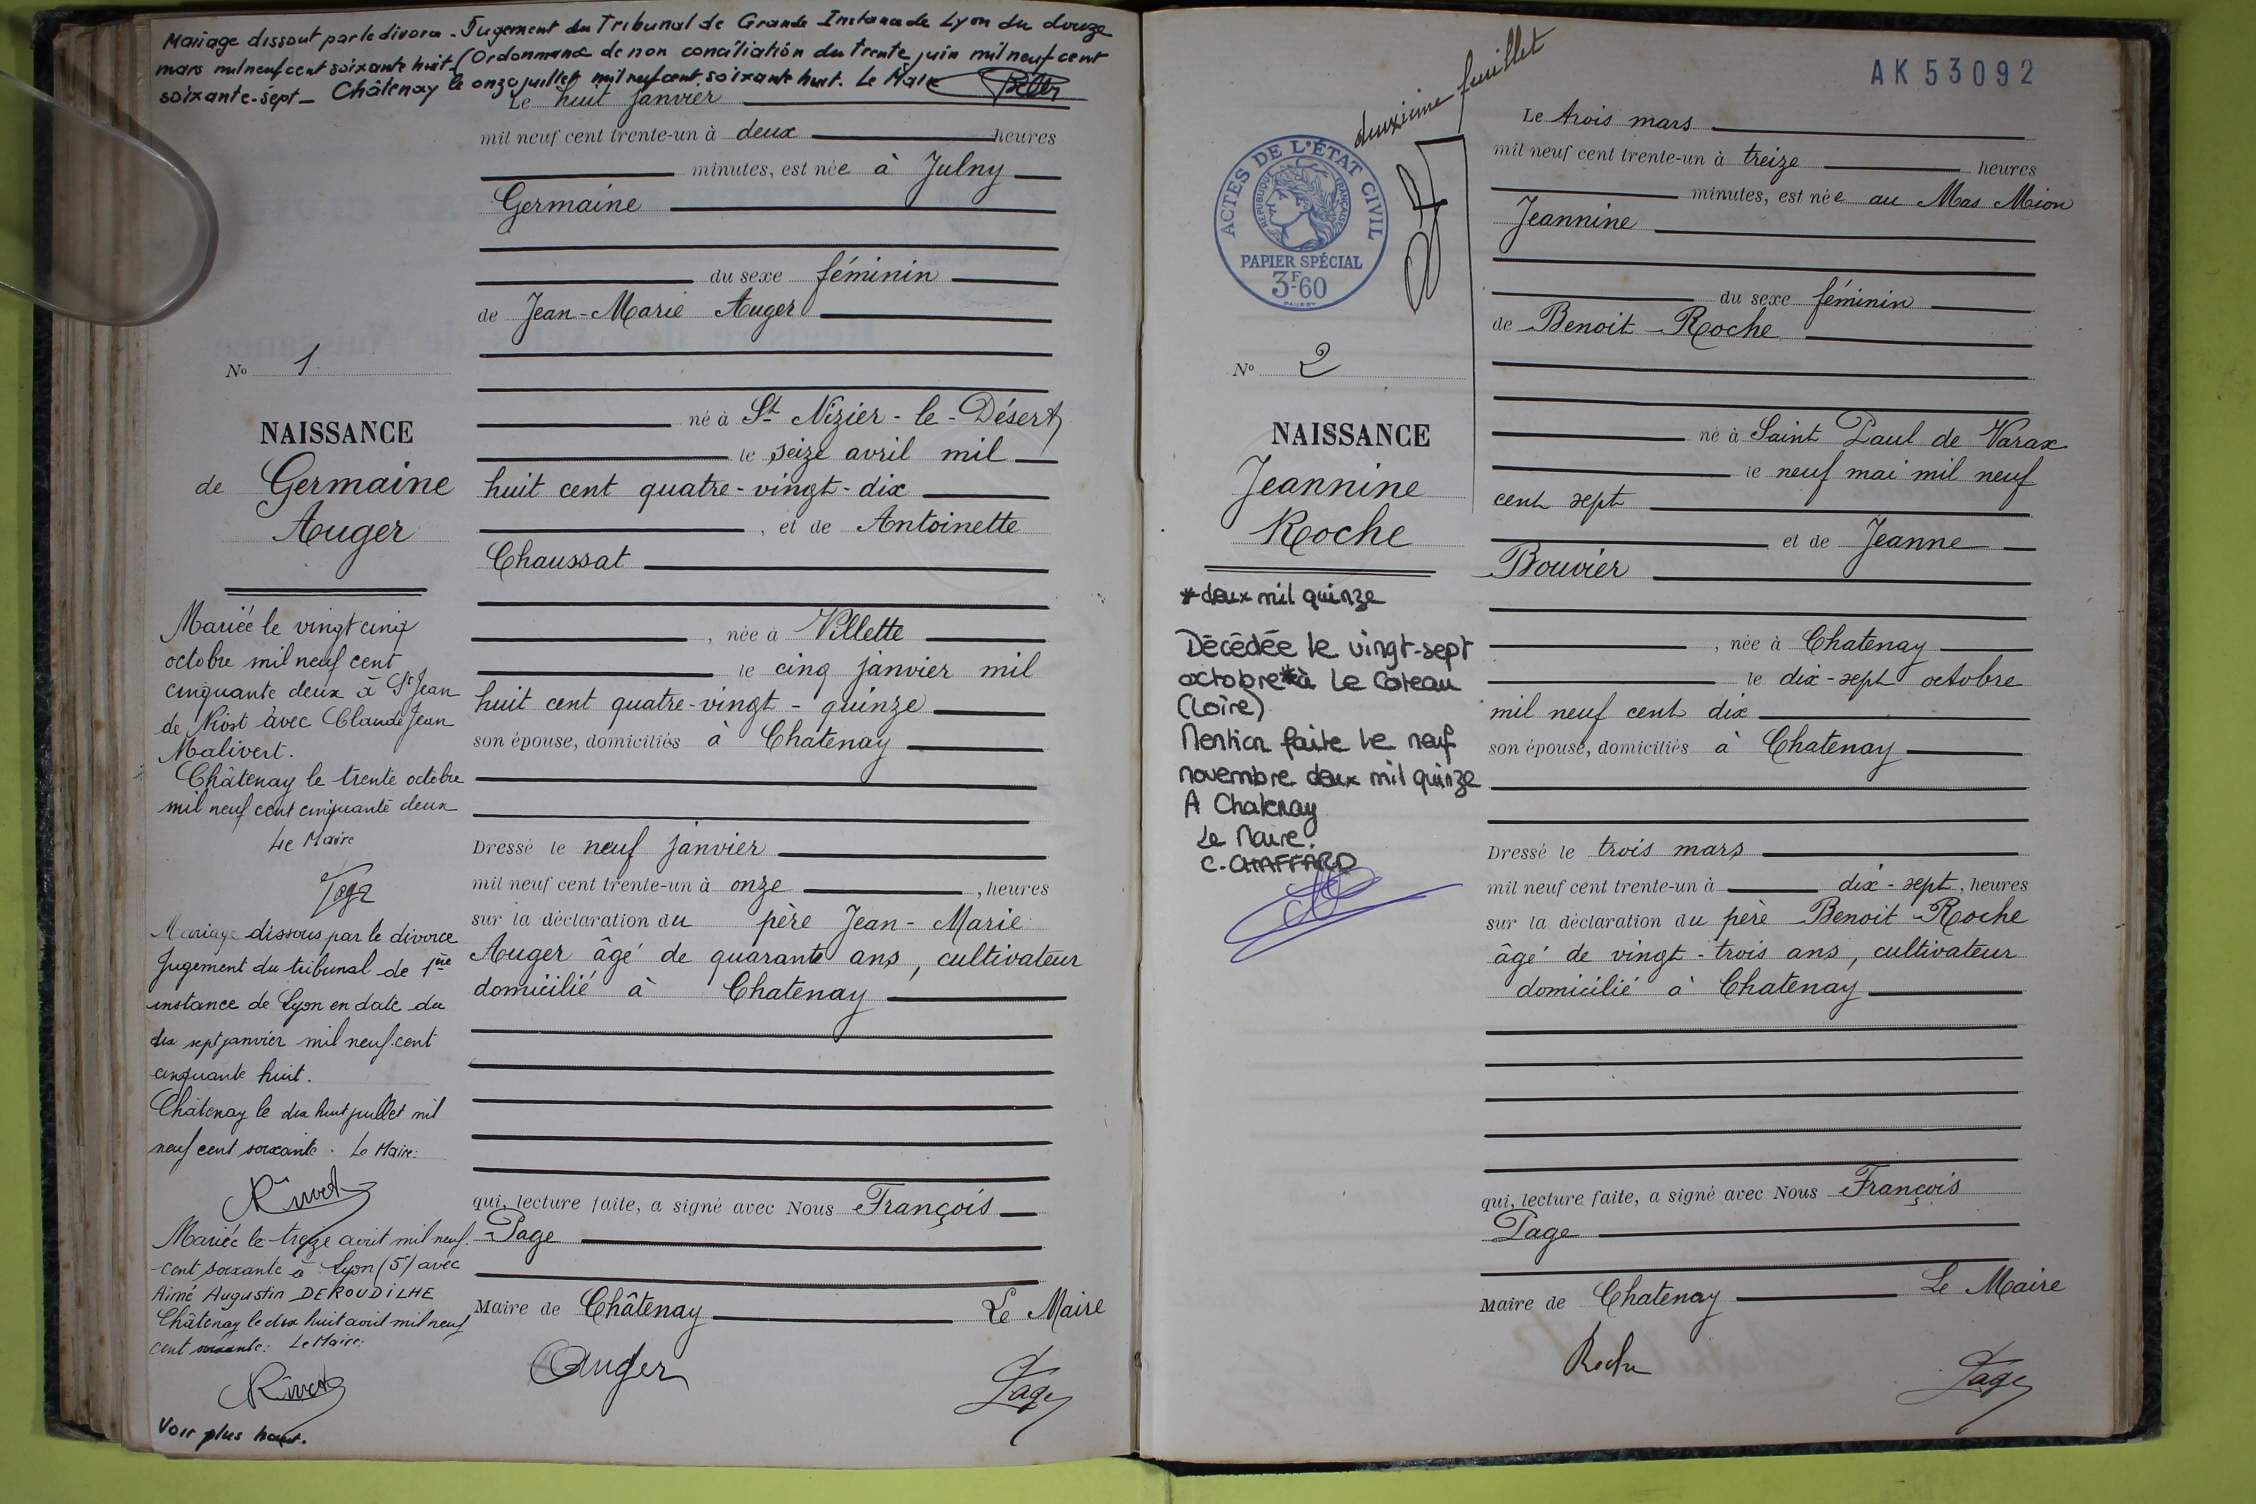 Mariage dissout par le divorce - Jugement du Tribunal de Grande Instance de Lyon du douze
mars mil neuf cent soixante huit - (Ordonnance de non conciliation du trente juin mil neuf cent
soixante-sept - Châtenay le onze juillet mil neuf cent soixante huit. Le Maire
N° 1
NAISSANCE
de Germaine
Auger
Mariée le vingt cinq
octobre mil neuf cent
cinquante deux à St Jean
de Niost avec Claude Jean
Malivert.
Châtenay le trente octobre
mil neuf cent cinquante deux
Le Maire
Page
Mariage dissous par le divorce
Jugement du tribunal de 1ère
instance de Lyon en date du
dix sept janvier mil neuf cent
cinquante huit.
Châtenay le dix huit juillet mil
neuf cent soixante. Le Maire:
Mariée le treize avril mil neuf
cent soixante à Lyon (5) avec
Aimé Augustin DEROUDILHE
Châtenay le dix huit avril mil neuf
cent soixante: Le Maire:
Voir plus haut.
Le huit janvier
mil neuf cent trente-un à deux heures
minutes, est née à Julny
Germaine
du sexe féminin
de Jean-Marie Auger
né à St Nizier-le-Désert
le seize avril mil
huit cent quatre-vingt-dix
, et de Antoinette
Chaussat
, née à Villette
le cinq janvier mil
huit cent quatre-vingt-quinze
son épouse, domiciliés à Châtenay
Dressé le neuf janvier
mil neuf cent trente-un à onze , heures
sur la déclaration du père Jean-Marie
Auger âgé de quarante ans, cultivateur
domicilié à Chatenay
qui, lecture faite, a signé avec Nous François
Page
Maire de Châtenay Le Maire
Auger Page
deuxième feuillet
AK53092
ACTES DE L'ÉTAT CIVIL
RÉPUBLIQUE FRANÇAISE
PAPIER SPÉCIAL
3F60
N° 2
NAISSANCE
Jeannine
Roche
*deux mil quinze
Décédée le vingt-sept
octobre*à Le Coteau
(Loire)
Mention faite le neuf
novembre deux mil quinze
A Chatenay
Le Maire.
C. CHAFFARD
Le trois mars
mil neuf cent trente-un à treize heures
minutes, est née au Mas Mion
Jeannine
du sexe féminin
de Benoit Roche
né à Saint Paul de Varax
le neuf mai mil neuf
cent sept
et de Jeanne
Bouvier
, née à Chatenay
le dix-sept octobre
mil neuf cent dix
son épouse, domiciliés à Chatenay
Dressé le trois mars
mil neuf cent trente-un à dix-sept, heures
sur la déclaration du père Benoit Roche
âgé de vingt-trois ans, cultivateur
domicilié à Chatenay
qui, lecture faite, a signé avec Nous François
Page
Maire de Chatenay Le Maire
Roche Page